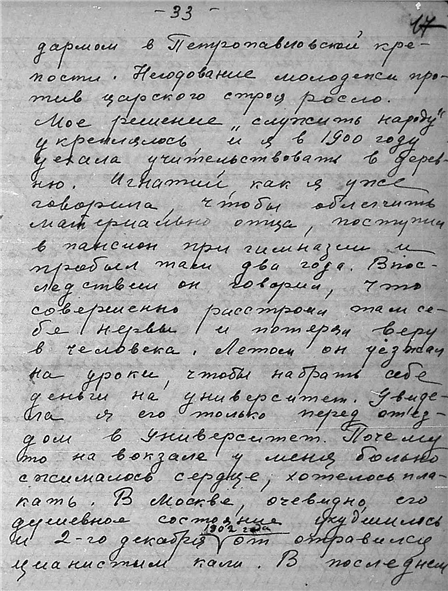 - 33 -
17
дармом в Петропавловской кре-
пости. Негодование молодежи про-
тив царского строя росло.
Мое решение „служить народу"
укреплялось и я в 1900 году
уехала учительствовать в дерев-
ню. Игнатий, как я уже
говорила, чтобы облегчить
материально отца, поступил
в пансион при гимназии и
пробыл там два года. Впос-
ледствии он говорил, что
совершенно расстроил там се-
бе нервы и потерял веру
в человека. Летом он уезжал
на уроки, чтобы набрать себе
деньги на университет. Увиде-
ла я его только перед от'ез-
дом в университет. Почему
то на вокзале у меня больно
сжималось сердце, хотелось пла-
кать. В Москве, очевидно, его
душевное состояние ухудшилось
1902 года
и 2-го декабря он отравился
цианистым кали. В последнем